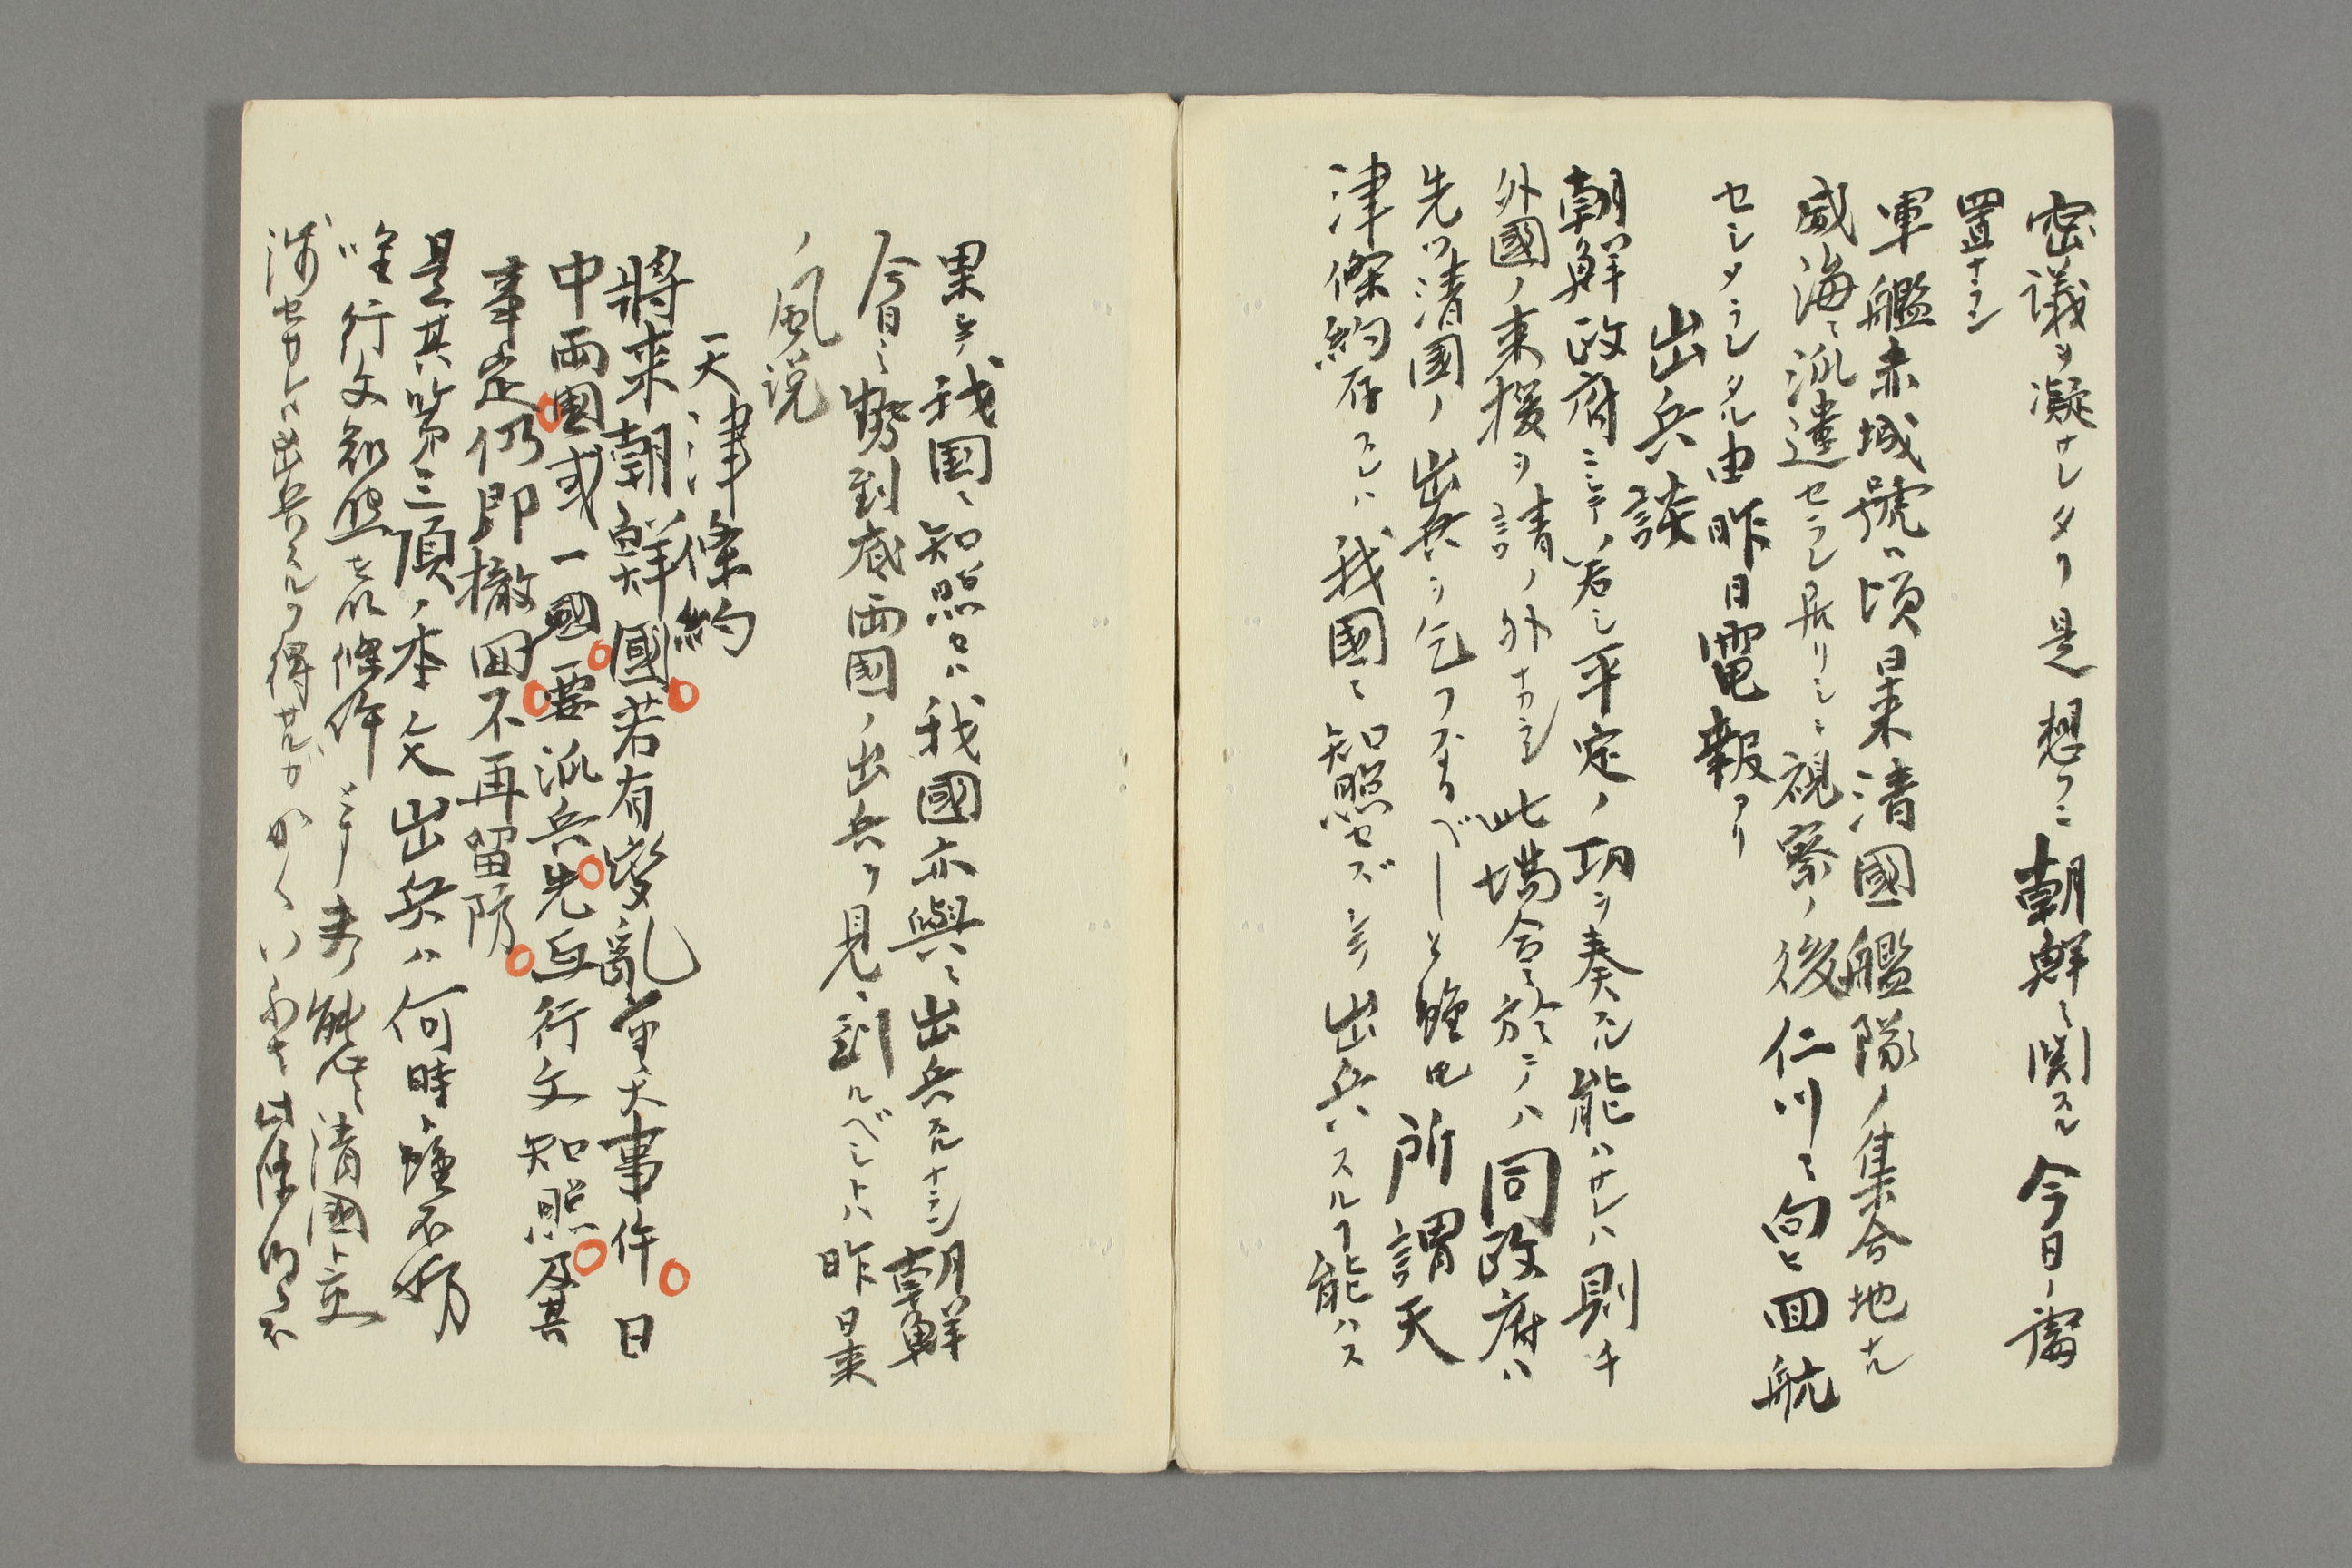 密議ヲ凝ナレタリ是想フニ朝鮮ニ関スル今日ノ處
置ナラン
軍艦赤城號ハ頃日来清國艦隊ノ集合地ナル
威海ニ派遣セラレ居リシニ視察ノ後仁川ニ向ヒ回航
セシメラレタル由昨日電報アリ
出兵談
朝鮮政府ニシテ若シ平定ノ功ヲ奏スル能ハサレハ則チ
外國ノ来援ヲ請ノ外ナカラン此場合ニ於テハ同政府ハ
先ツ清國ノ出兵ヲ乞フナルベしと雖モ所謂天
津條約存スレハ我國ニ知照セズシテ出兵ハスルヿ能ハス
果シテ我国ニ知照セハ我國亦與ニ出兵スルナラン朝鮮
今日ノ勢到底両国ノ出兵ヲ見ニ到ルベシトハ昨日来
ノ風説
天津條約
将来朝鮮國若有變亂重大事件日
中両國或一國要派兵先互行文知照及其
事定仍即撤回不再留防
是其第三項ノ本文出兵ハ何時ト雖不妨
唯行文知照せる條件 清國ト交
渉セサレハ出兵スルヿ得サルガかくいふ